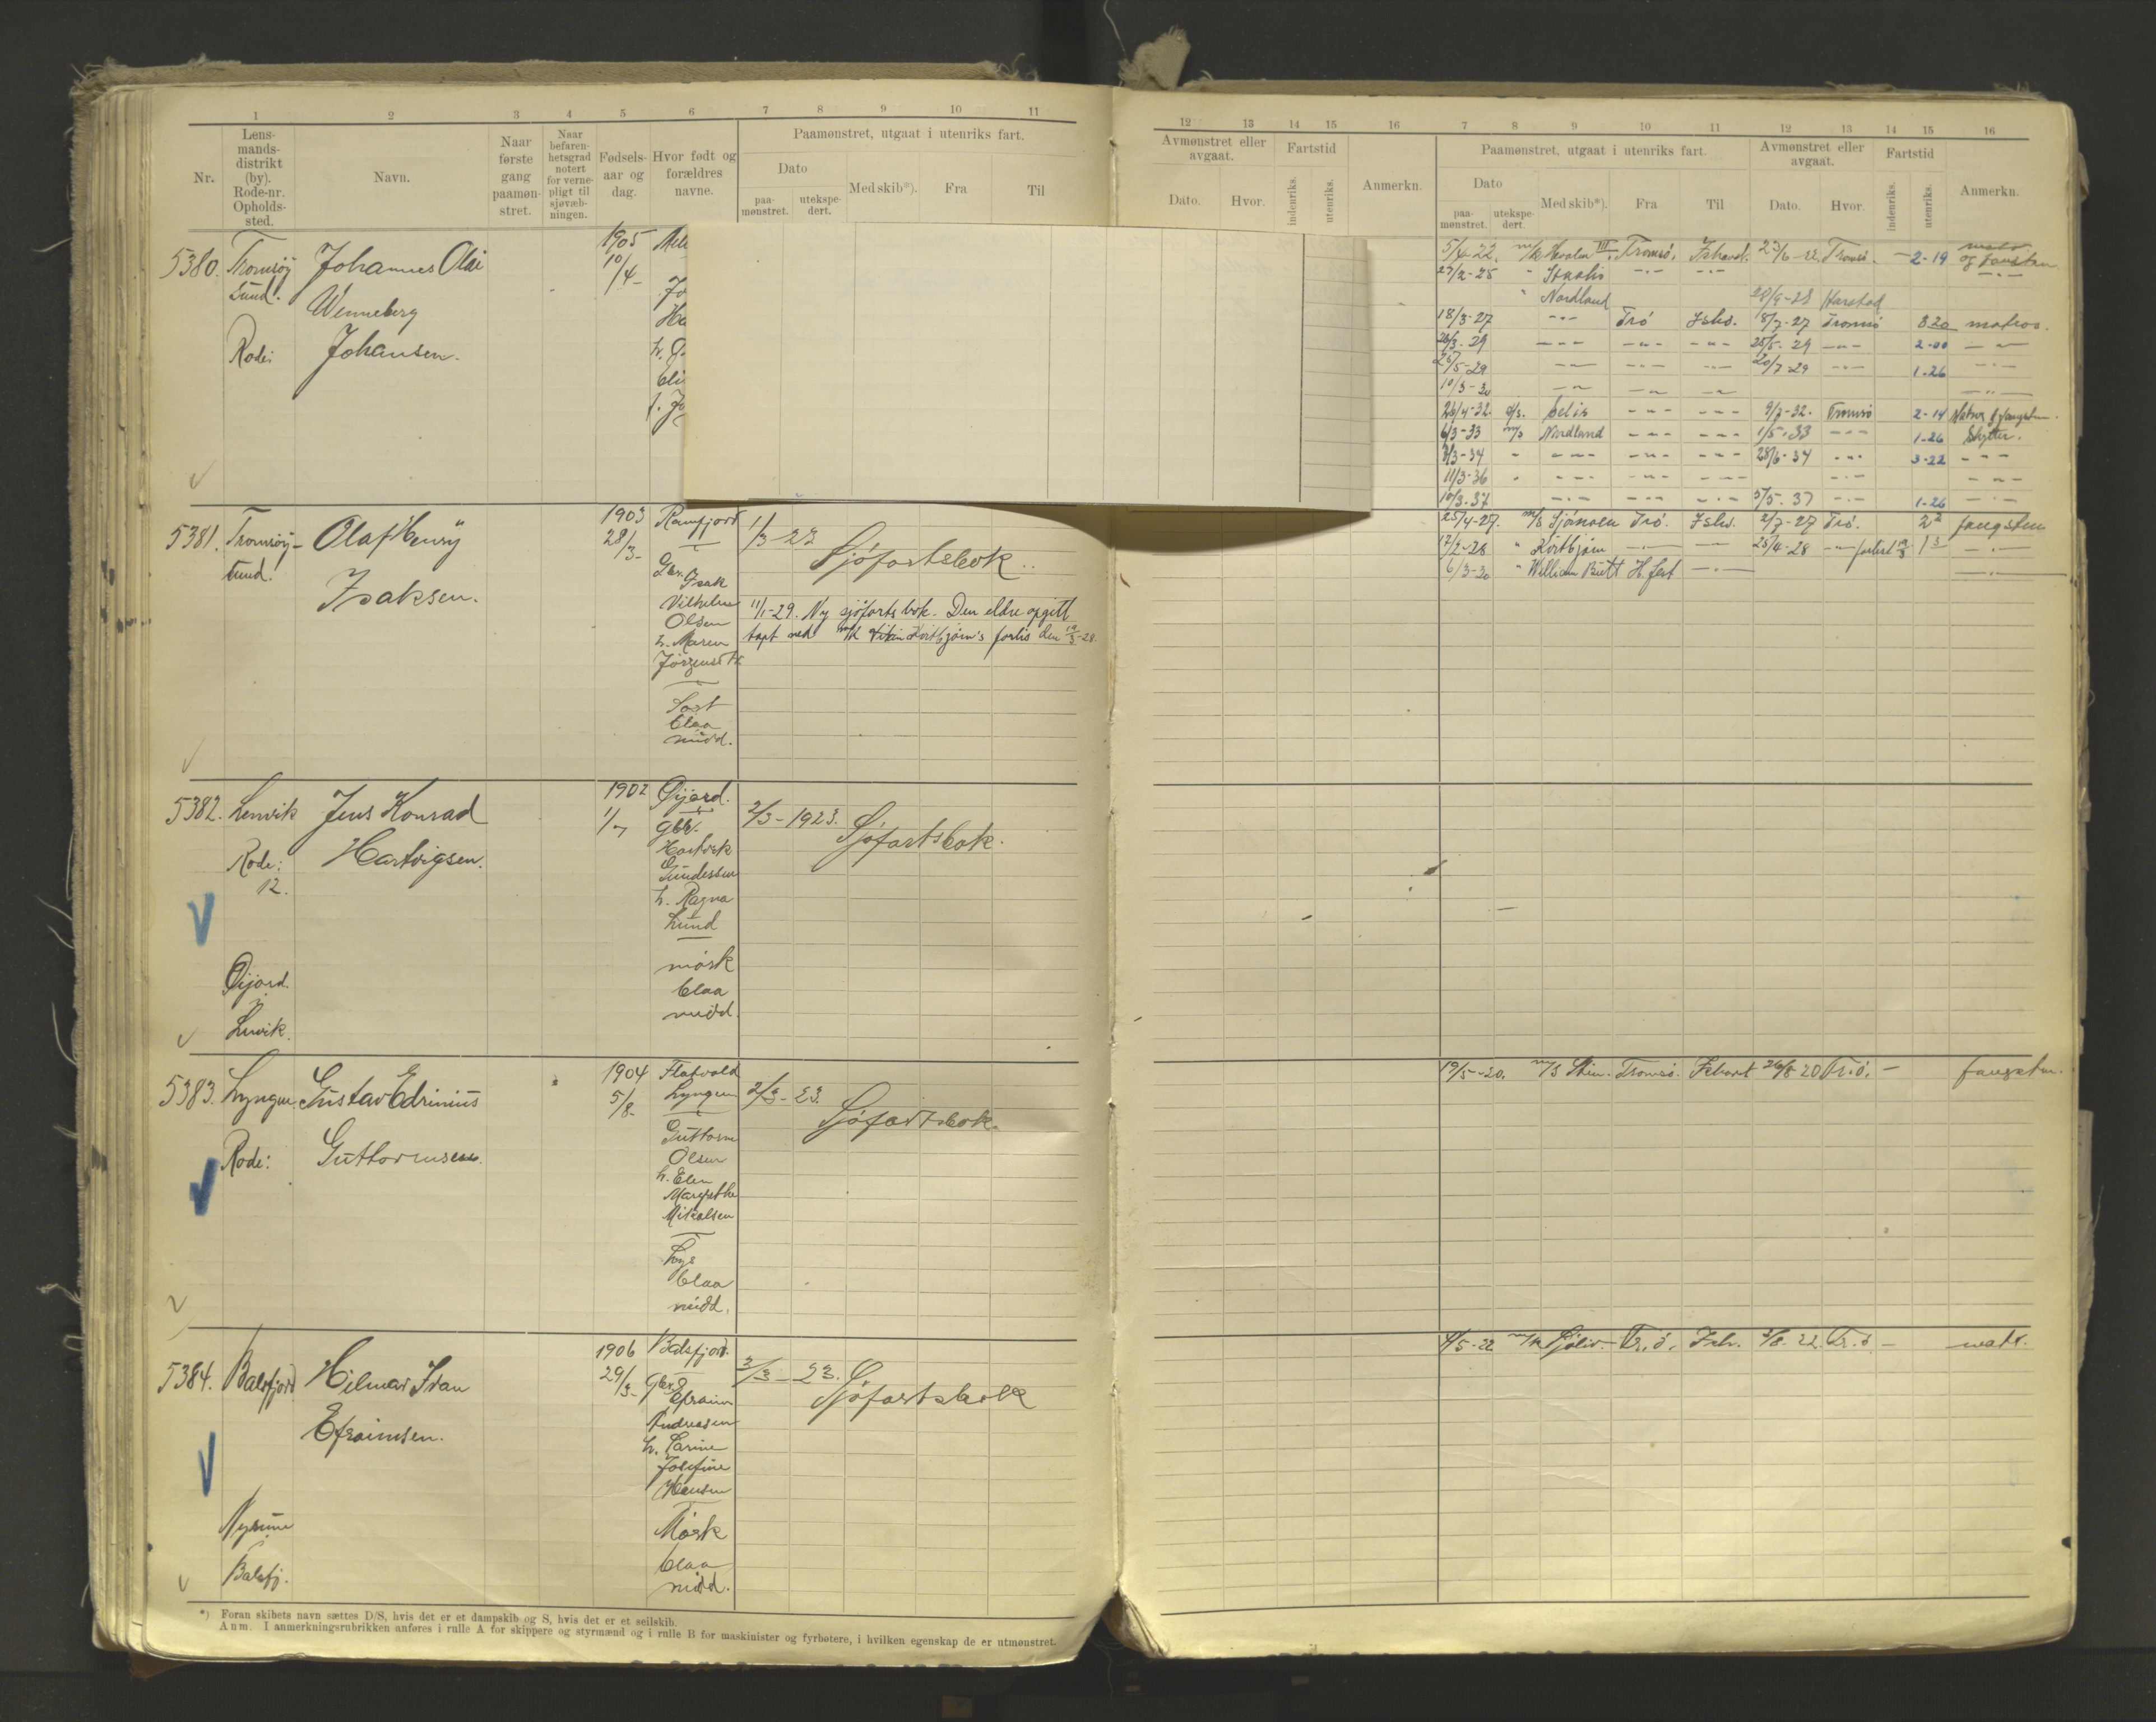 1 2 3 4 5 6 7 8 9 10 11
Nr.
Lens-
mands-
distrikt
(by).
Rode-nr.
Opholds-
sted.
Navn.
Naar
første
gang
paamøn-
stret.
Naar
befaren-
hetsgrad
notert
for verne-
pligt til
sjøvæb-
ningen.
Fødsels-
aar og
dag.
Hvor født og
forældres
navne.
Paamønstret, utgaat i utenriks fart.
Dato
paa-
mønstret.
utekspe-
dert.
Med skib*).
Fra
Til
5380.
Tromsøy
sund.
Rode:
Johannes Olai
Wenneberg
Johansen.
1905
10/4-
5381.
Tromsøy-
sund.
Olaf Henry
Isaksen.
1903
28/3-
Ramfjord
Gbr. Isak
Vilhelm
Olsen
h. Maren
Sort
blaa
midd.
1/3-23
Sjøfartsbok.
11/1-29. Ny sjøfartsbok. Den eldre opgitt
tapt ved m/k Kvitbjørn's forlis den 19/3-28.
5382.
Lenvik
Rode:
12.
Gijord.
Lenvik.
Jens Konrad
Hartvigsen.
1902
1/7
Gijord.
Gbr.
Hartvik
Gundersen
h. Ragna
Lund
mørk
blaa
midd.
2/3-1923.
Sjøfartsbok.
5383.
Lyngen
Rode:
Gustav Edrinius
Guttormsen.
1904
5/8-
Flatvold
Lyngen
Guttorm
Olsen
h. Elen
Margrethe
Mikalsen
Lys
blaa
midd.
2/3-23.
Sjøfartsbok.
5384.
Balsfjord
Balsfj.
Hilmar Ivan
Efraimsen.
1906
29/3-
Balsfjord.
Gbr.
Efraim
Andreasen
h. Karine
Josefine
Hansen
Mørk
blaa
midd.
3/3-23.
Sjøfartsbok
*) Foran skibets navn sættes D/S, hvis det er et dampskib og S, hvis det er et seilskib.
Anm. I anmerkningsrubrikken anføres i rulle A for skippere og styrmænd og i rulle B for maskinister og fyrbøtere, i hvilken egenskap de er utmønstret.
12 13 14 15 16 7 8 9 10 11 12 13 14 15 16
Avmønstret eller
avgaat.
Dato.
Hvor.
Fartstid
indenriks.
utenriks.
Anmerkn.
Paamønstret, utgaat i utenriks fart.
Dato
paa-
mønstret.
utekspe-
dert.
Med skib*).
Fra
Til
Avmønstret eller
avgaat.
Dato.
Hvor.
Fartstid
indenriks.
utenriks.
Anmerkn.
5/4-22. m/k Hvalen III. Tromsø. Ishavet. 23/6-22. Tromsø. - 2-19
og fangstm.
Nordland Harstad
18/3-27 -"- Trö Ishv. 8/7-27 Tromsø 3 20 matros.
26/3-29 -"- -"- -"- 25/5-29 -"- 2-00 -"-
25/5-29 -"- -"- -"- 20/7-29 -"- 1-26 -"-
10/3-30 -"- -"- -"- -"-
26/4-32. Selis -"- -"- 9/7-32. Tromsø 2-14 Matros & fangstm.
6/3-33 m/s Nordland -"- -"- 1/5-33 -"- 1-26 Skytter.
8/3-34 " -"- -"- -"- 28/6-34 -"- 3-22 -"-
11/3-36 " -"- -"- -"- -"- -"-
10/3-37 -"- -"- -"- 5/5-37 -"- 1-26 -"-
25/4-27. m/s Trö. Ishv. 2/7-27 Trö. fangstm
17/2-28 " Kvitbjörn -"- -"- 25/4-28 -"- forlist 19/3 -"-
6/3-30 " William Butt H.fest -"- -"-
19/5-20. m/s Tromsø. Ishavet 26/8 20 Tr.ö. - fangstm.
4/5-22 m/k Sjöliv. Tr.ö. Ishv. Tr.ö -